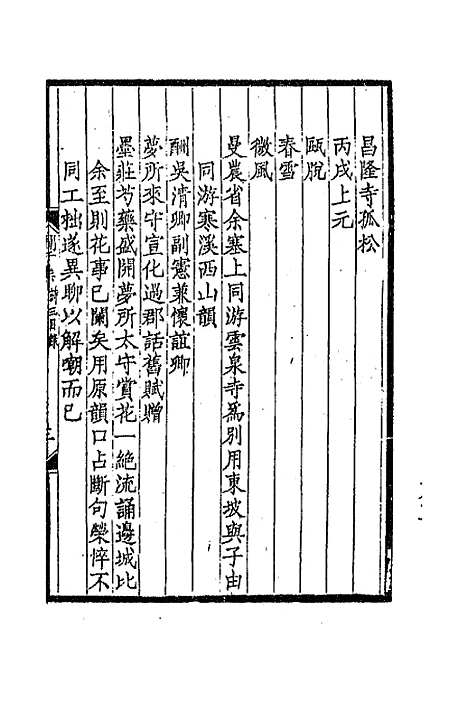 昌隆寺孤松
丙戌上元
甌脫
春雪
微風
曼農省余塞上同游雲泉寺爲別用東坡與子由
同游寒溪西山韻
酬吳清卿副憲兼懷誼卿
夢所來守宣化過郡話舊賦贈
墨莊芍藥盛開夢所太守賞花一絶流誦邊城比
余至則花事已闌矣用原韻口占斷句榮悴不
同工拙遂異聊以解嘲而已